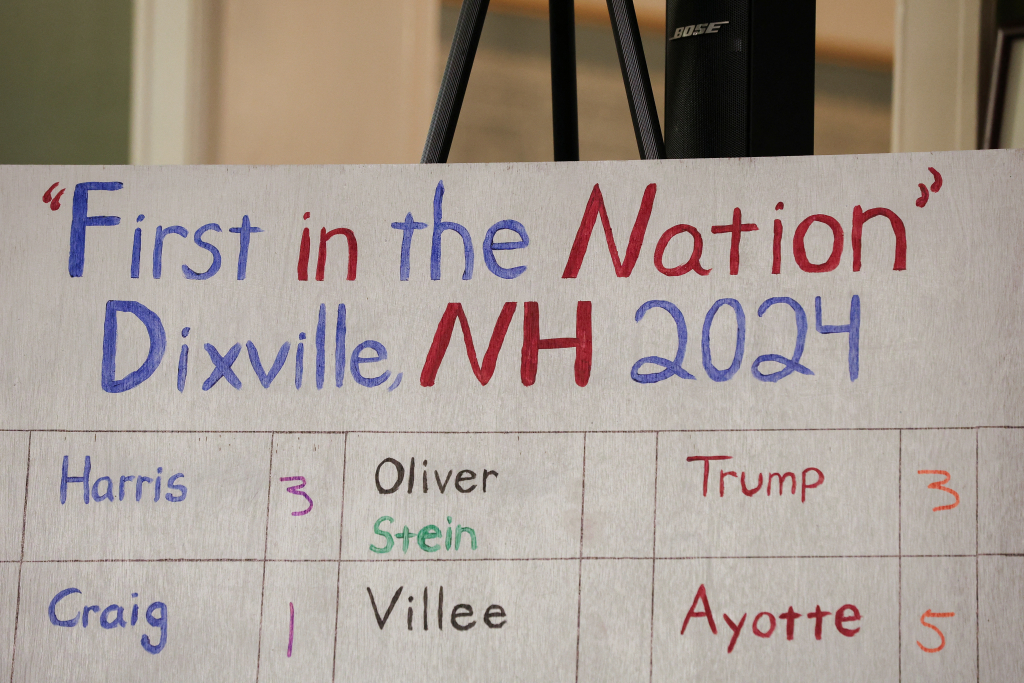 BOSE
“First in the Nation”
Dixville, NH 2024
Harris 3 Oliver Trump 3
Stein
Craig 1 Villee Ayotte 5